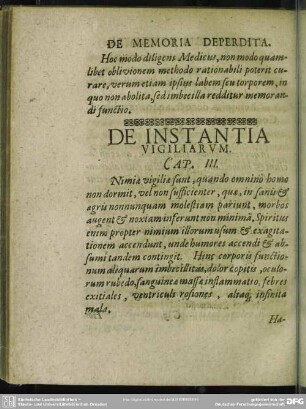 DE MEMORIA DEPERDITA.
Hoc modo diligens Medicus, non modo quam-
libet oblivionem methodo rationabili poterit cu-
rare, verum etiam ipsius labem seu torporem, in
quo non abolita, sed imbecilla redditur memoran-
di functio.
DE INSTANTIA
VIGILIARVM.
CAP. III.
Nimiæ vigiliæ sunt, quando omninò homo
non dormit, vel non sufficienter, quæ, in sanis &
ægris nonnunquam molestiam pariunt, morbos
augent & noxiam inferunt non minimã, Spiritus
enim propter nimium illorum usum & exagita-
tionem accendunt, unde humores accendi & ab-
sumi tandem contingit. Hinc corporis functio-
num aliquarum imbecillitas, dolor capitis, oculo-
rum rubedo, sanguineæ massæ inflammatio, febres
exitiales, ventriculi rosiones, aliaq; infinita
mala,
Ha-